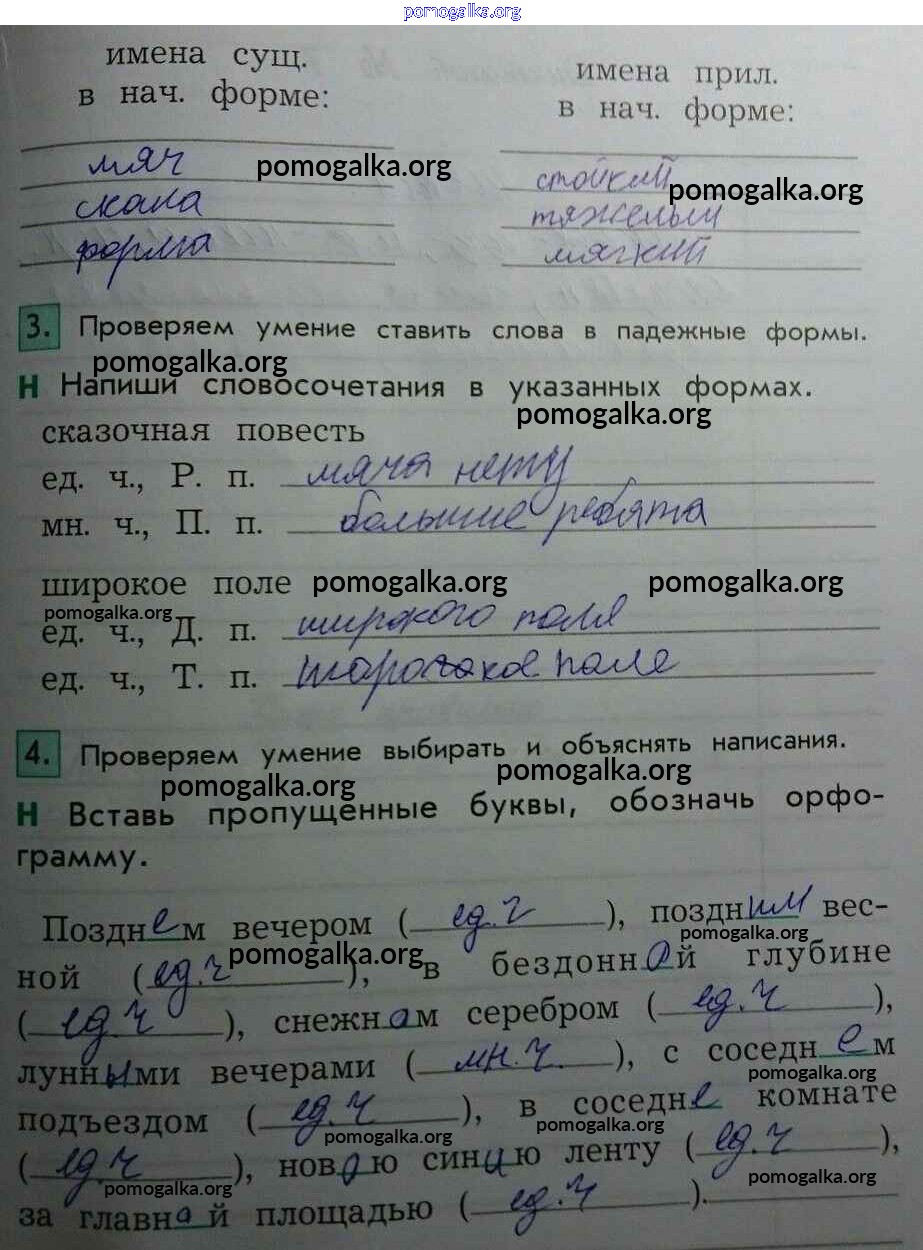 pomogalka.org
имена сущ. имена прил.
в нач. форме: в нач. форме:
мяч pomogalka.org стойкий pomogalka.org
скала тяжелый
форма мягкий
3. Проверяем умение ставить слова в падежные формы.
pomogalka.org
Н Напиши словосочетания в указанных формах.
pomogalka.org
сказочная повесть
ед. ч., Р. п. мяча нету
мн. ч., П. п. большие ребята
широкое поле pomogalka.org pomogalka.org
pomogalka.org
ед. ч., Д. п. широкого поля
ед. ч., Т. п. поле
4. Проверяем умение выбирать и объяснять написания.
pomogalka.org pomogalka.org
Н Вставь пропущенные буквы, обозначь орфо-
грамму.
Позднем вечером (ед.ч), поздним вес-
pomogalka.org
ной (ед.ч), в бездонной глубине
pomogalka.org
(ед.ч), снежном серебром (ед.ч),
лунными вечерами (мн.ч), с соседнем
pomogalka.org
подъездом (ед.ч), в соседне комнате
pomogalka.org pomogalka.org
(ед.ч), новою синию ленту (ед.ч),
pomogalka.org pomogalka.org
за главнай площадью (ед.ч).